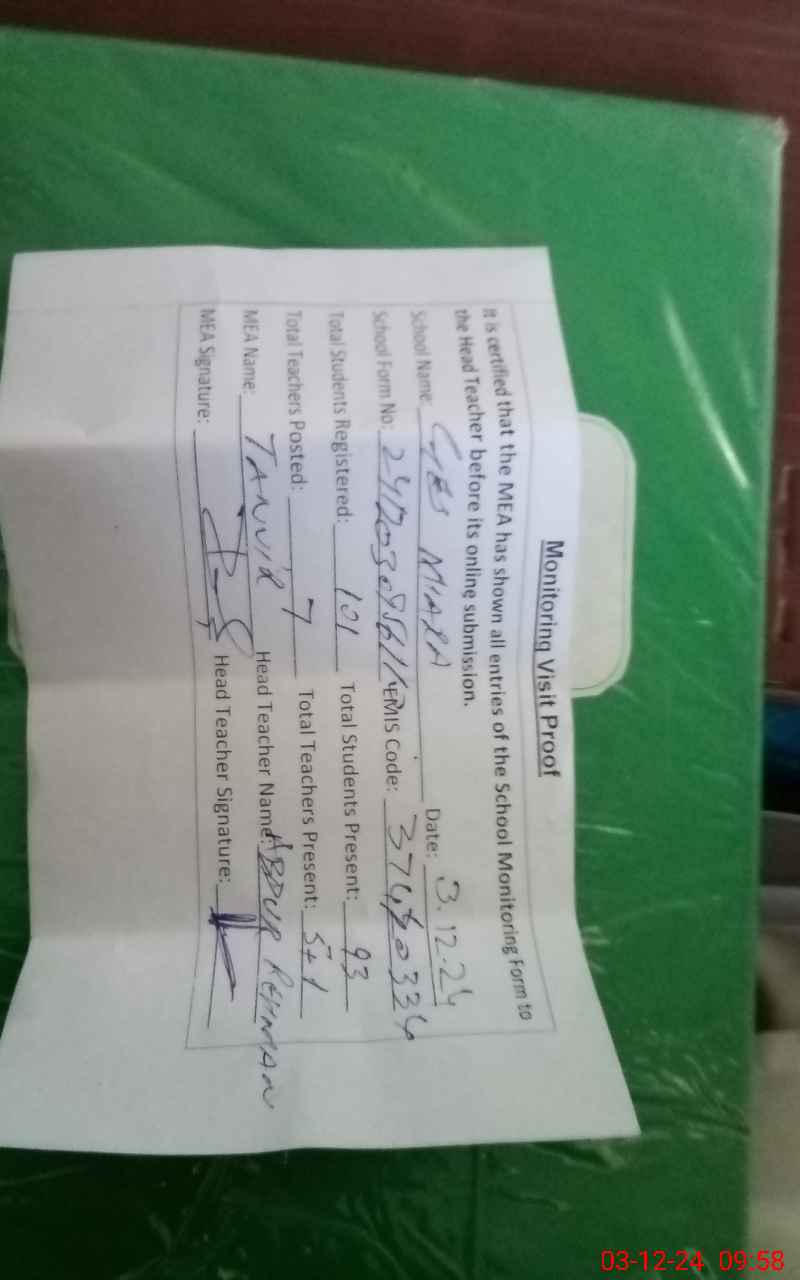 Monitoring Visit Proof
It is certified that the MEA has shown all entries of the School Monitoring Form to
the Head Teacher before its online submission.
School Name: GES MIARA Date: 3.12.24
School Form No: EMIS Code:
Total Students Registered: 101 Total Students Present: 93
Total Teachers Posted: 7 Total Teachers Present: 5+1
MEA Name: TANVIR Head Teacher Name: ABDUR REHMAN
MEA Signature: Head Teacher Signature:
03-12-24 09:58